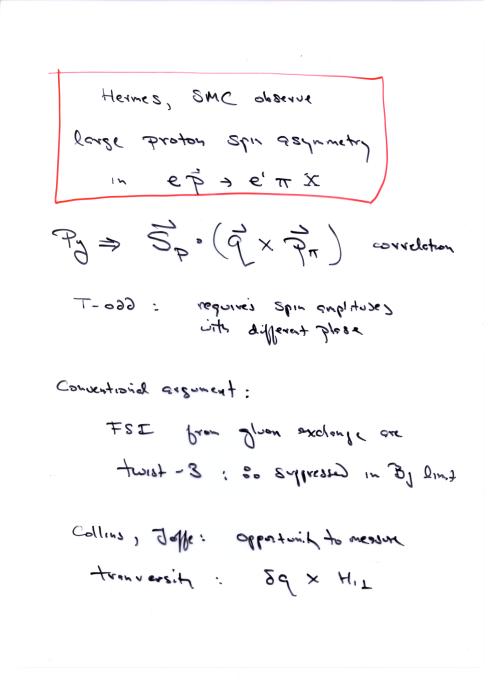 Hermes, SMC observe
large proton spin asymmetry
in e p⃗ → e' π X
Py ⇒ S⃗p · (q⃗ × p⃗π) correlation
T-odd : requires spin amplitudes
with different phase
Conventional argument :
FSI from gluon exchange are
twist-3 : so suppressed in Bj limit
Collins, Jaffe : opportunity to measure
tranversity : δq × H1⊥